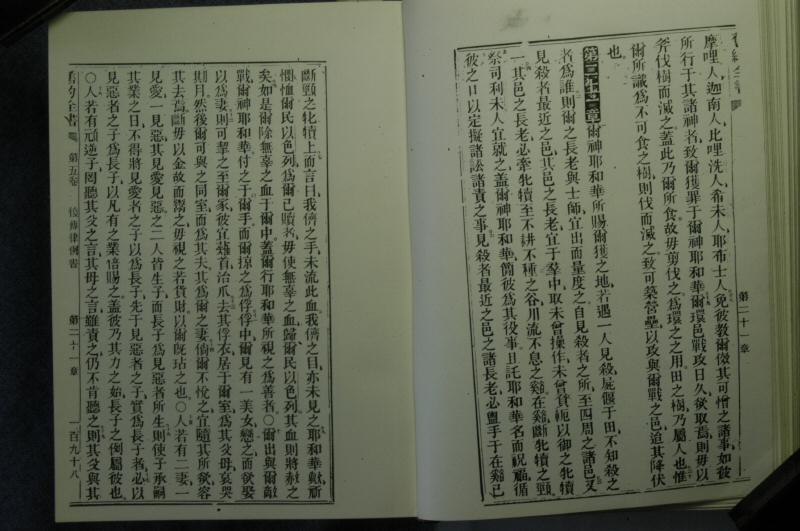 摩哩人迦南人比哩洗人希未人耶布士人免彼教爾傚其可憎之諸事如彼
所行于其諸神者致爾獲罪于爾神耶和華爾環邑戰攻日久欲取焉則毋以
斧伐樹而滅之蓋此乃爾所食故毋剪伐之為環之之用田之樹乃屬人也惟
爾所識為不可食之樹則伐而滅之致可築營壘以攻與爾戰之邑迨其降伏
也
第二十一章爾神耶和華所賜爾獲之地若遇一人見殺屍偃于田不知殺之
者為誰則爾之長老與士師宜出而量度之自見殺者之所至四周之諸邑又
見殺者最近之邑其邑之長老宜于羣中取未曾操作未曾負軛以御之牝犢
一其邑之長老必牽牝犢至不耕不種之谷川流不息之谿在谿斷牝犢之頸
祭司利未人宜就之蓋爾神耶和華簡彼為其役事且託耶和華名而祝福循
彼之口以定擬諸訟諸責之事見殺者最近之邑之諸長老必盥手于在谿已
第二十一章
斷頸之牝犢上而言曰我儕之手未流此血我儕之目亦未見之耶和華歟願
憫恤爾民以色列為爾已贖者毋使無辜之血歸爾民以色列其血則將赦之
矣如是爾除無辜之血于爾中蓋爾行耶和華所視之為善者○爾出與爾敵
戰爾神耶和華付之于爾手而爾掠之為俘俘中爾見有一美女戀之而欲娶
以為妻則可挈之至爾家彼宜薙首治爪去其俘衣居于爾室為其父母哀哭
期月然後爾可與之同室而為其夫其為爾之妻倘爾不悅之宜隨其所欲容
其去焉斷毋以金故而鬻之毋視之若貨財以爾既玷之也○人若有二妻一
見愛一見惡其見愛見惡之二人皆生子而長子為見惡者所生則使子承嗣
其業之日不得將見愛者之子以為長子先于見惡者之子實為長子者必以
見惡者之子為長子以凡有之業倍賜之蓋彼乃其力之始長子之例屬彼也
○人若有頑逆子罔聽其父之言其母之言雖責之仍不肯聽之則其父與其
舊約全書 第五卷 復傳律例書 第二十一章 一百九十八